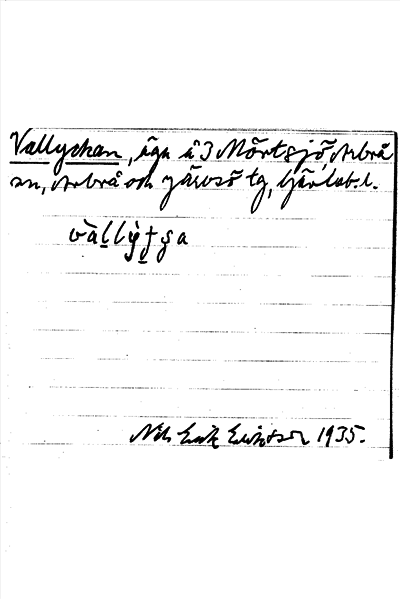 Vallyckan, äga å 3 Mörtsjö, Arbrå
sn, Arbrå och Järvsö tg, Gävleb. l.
vàl̲lỳt̲ʃa
Nils Erik Eriksson 1935.